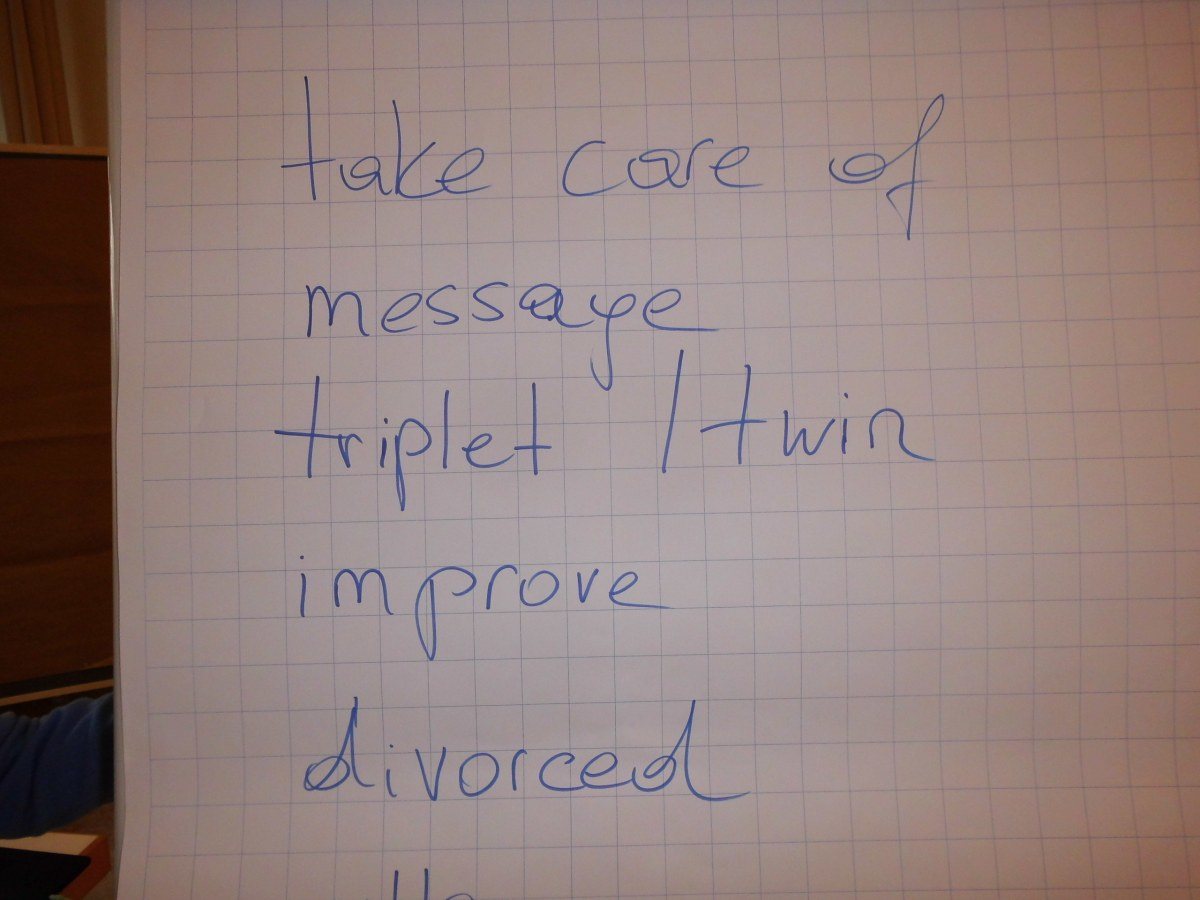 take care of
message
triplet / twin
improve
divorced